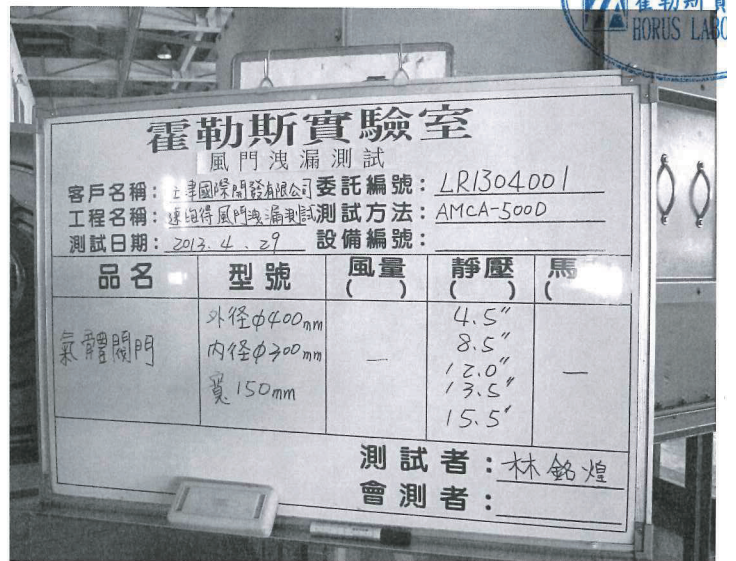 霍勒斯實
HORUS LABO
霍勒斯實驗室
風門洩漏測試
客戶名稱：土津國際開發有限公司 委託編號：LR1304001
工程名稱：連緗得風門洩漏測試 測試方法：AMCA-500D
測試日期：2013.4.29 設備編號：
品名 型號 風量 靜壓 馬
( ) ( ) (
氣體閥門
外径φ400mm
內径φ300mm
寬150mm
—
4.5"
8.5"
12.0"
13.5"
15.5"
—
測試者：林銘煌
會測者：